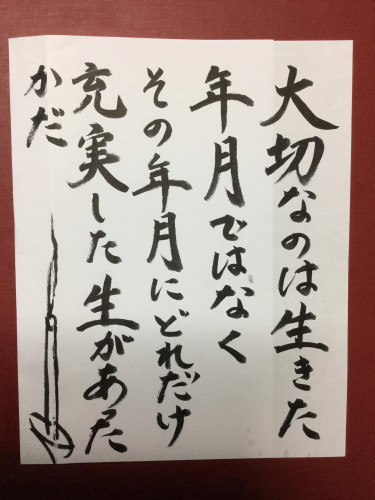 大切なのは生きた
年月ではなく
その年月にどれだけ
充実した生があった
かだ